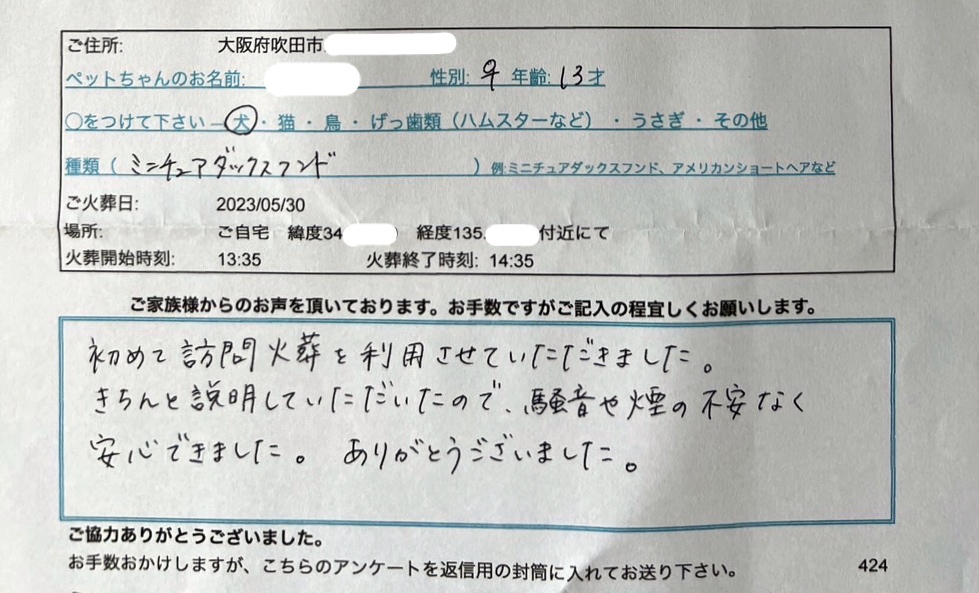 ご住所: 大阪府吹田市
ペットちゃんのお名前: 性別: ♀ 年齢: 13才
○をつけて下さい―犬・猫・鳥・げっ歯類（ハムスターなど）・うさぎ・その他
種類（ミニチュアダックスフンド）例:ミニチュアダックスフンド、アメリカンショートヘアなど
ご火葬日: 2023/05/30
場所: ご自宅 緯度34 経度135. 付近にて
火葬開始時刻: 13:35 火葬終了時刻: 14:35
ご家族様からのお声を頂いております。お手数ですがご記入の程宜しくお願いします。
初めて訪問火葬を利用させていただきました。
きちんと説明していただいたので、騒音や煙の不安なく
安心できました。ありがとうございました。
ご協力ありがとうございました。
お手数おかけしますが、こちらのアンケートを返信用の封筒に入れてお送り下さい。 424